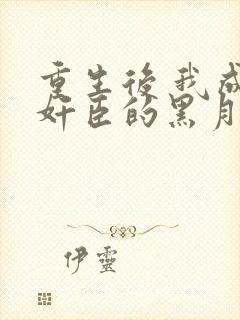 重生後我成
奸臣的黑月
伊靈